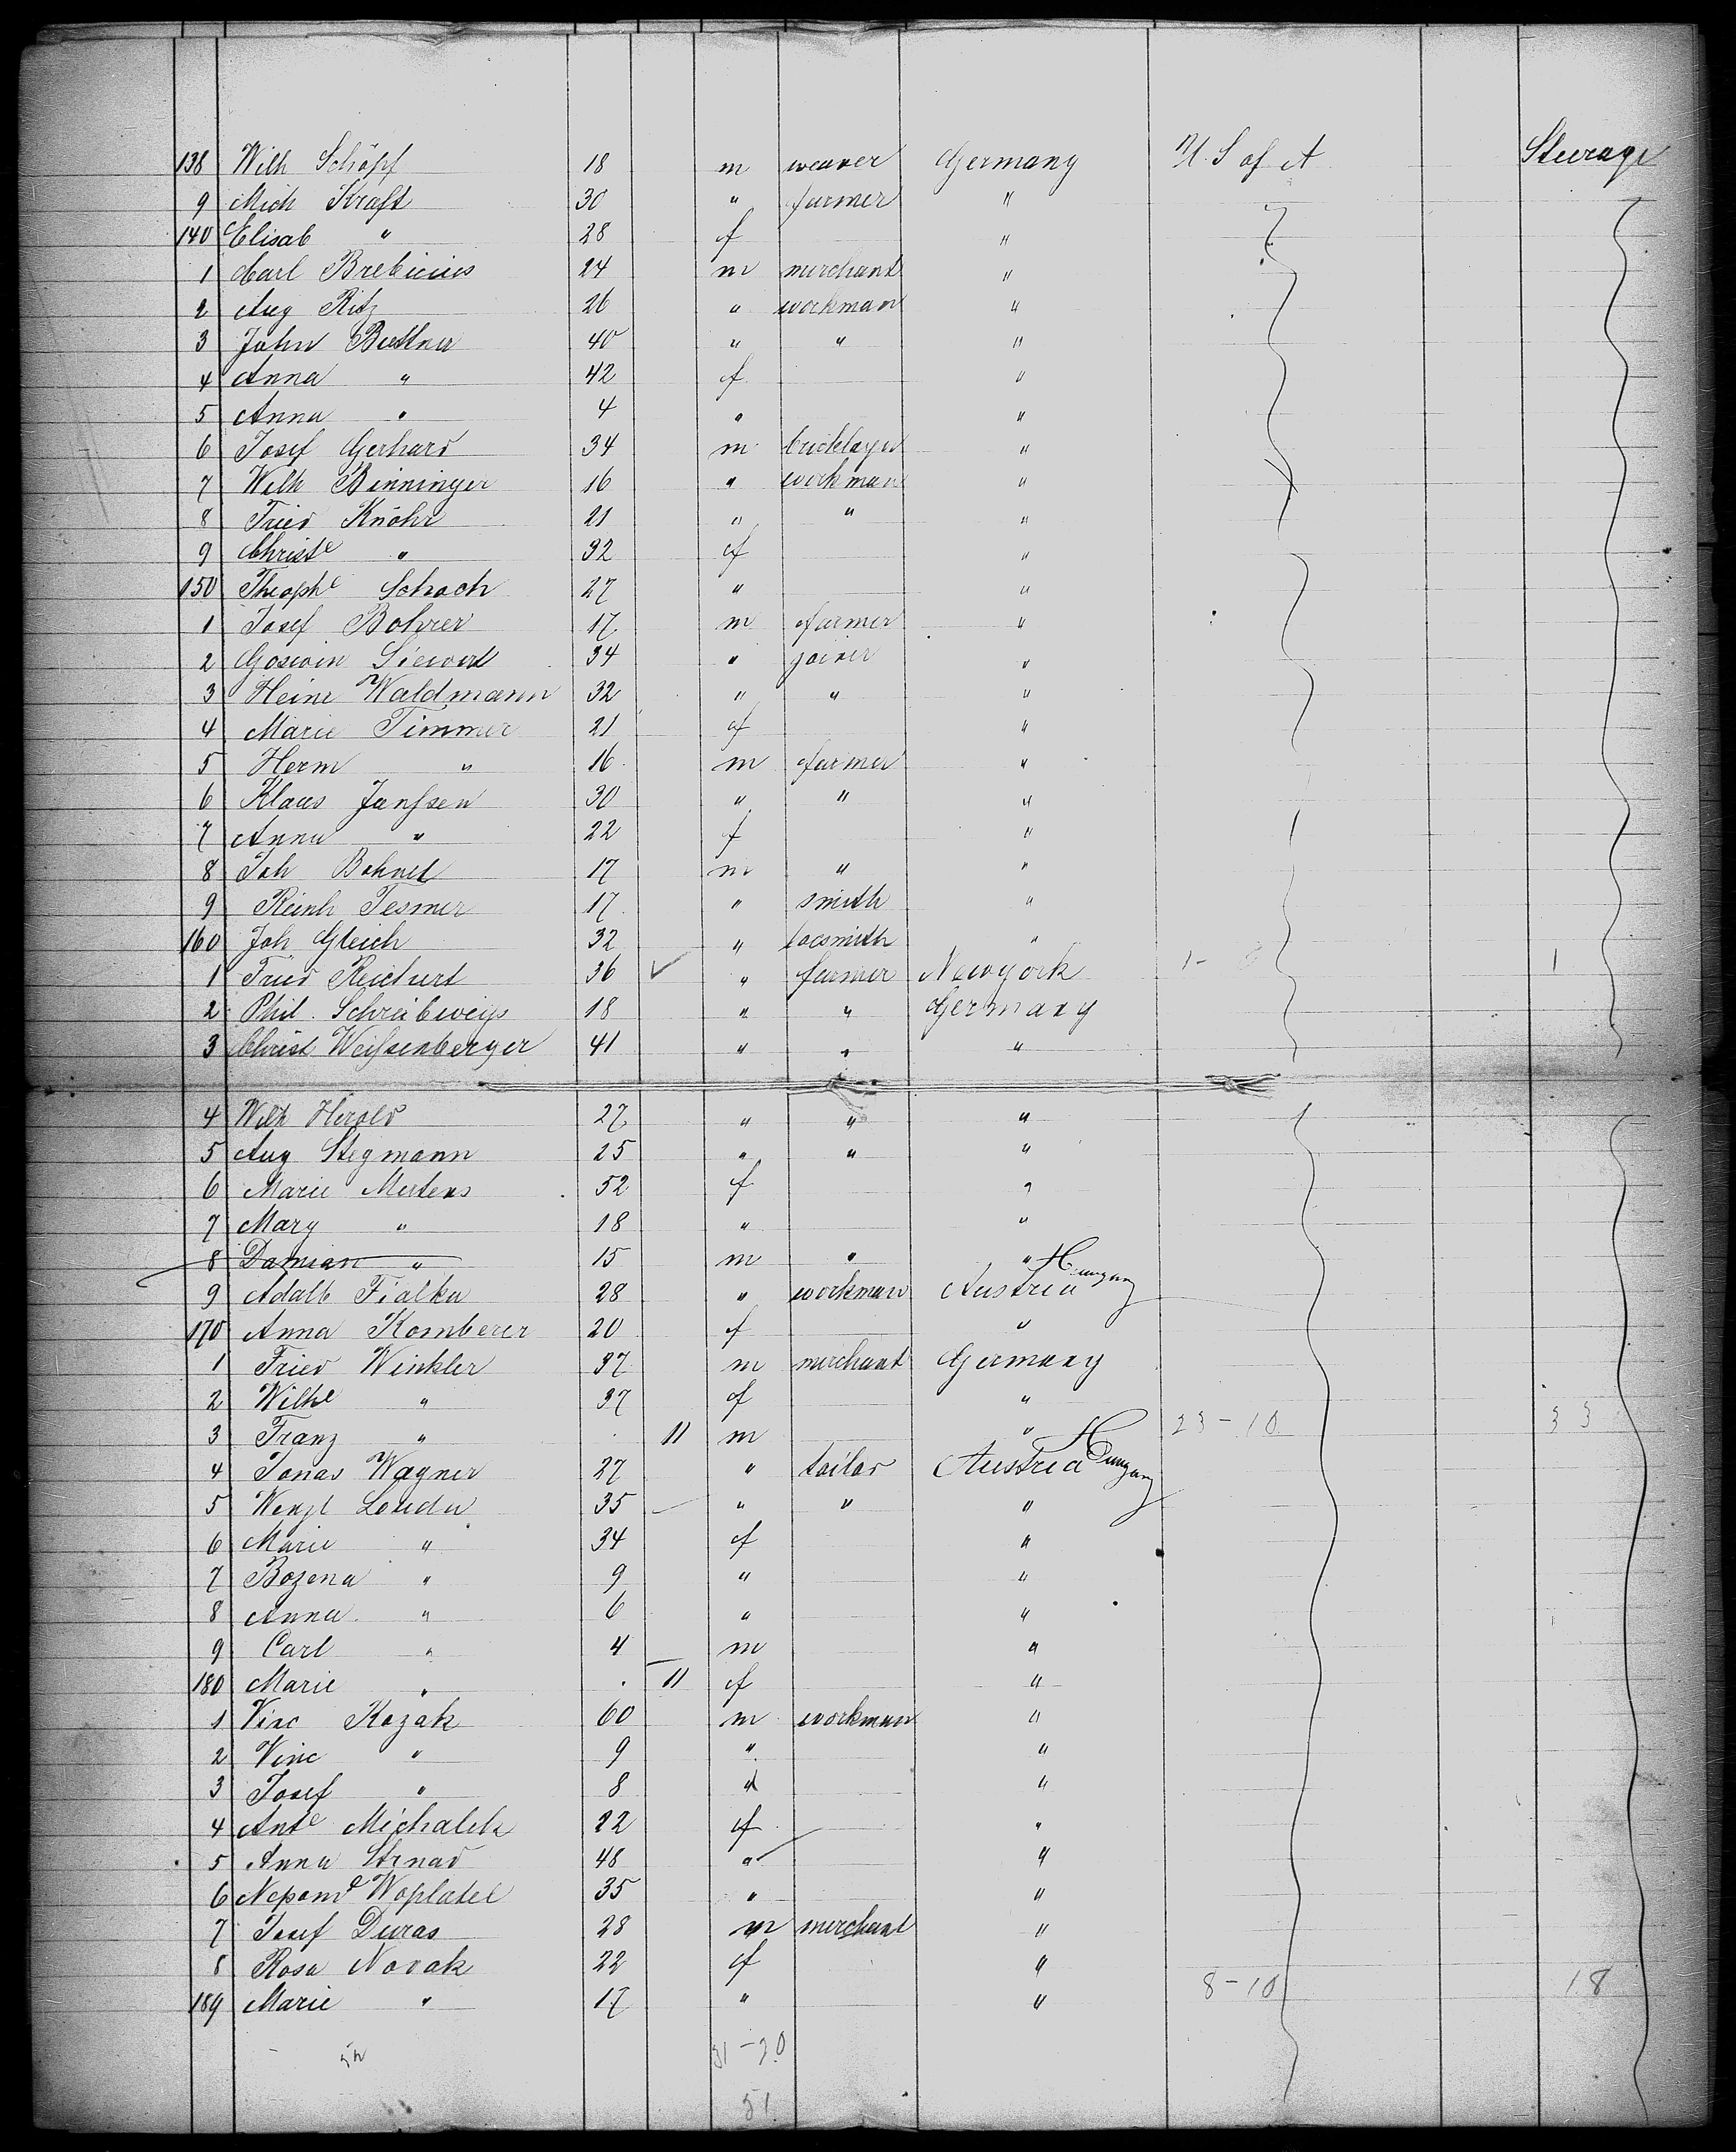 138 Wilh Schöpf 18 m weaver Germany U. S of A Steerage
9 Mich Kraft 30 " farmer "
140 Elisab " 28 f "
1 Carl Brebicius 24 m merchant "
2 Aug Ritz 26 " workman "
3 John Buttner 40 " " "
4 Anna " 42 f "
5 Anna " 4 " "
6 Josef Gerhard 34 m bricklayer "
7 Wilh Binninger 16 " workman "
8 Fried Knöhr 21 " " "
9 Christe " 32 f "
150 Theophe Schach 27 " "
1 Josef Bohrer 17 m farmer "
2 Goswin Siewert 34 " joiner "
3 Heinr Waldmann 32 " " "
4 Marie Timmer 21 f "
5 Herm " 16 m farmer "
6 Klaas Janssen 30 " " "
7 Anna " 22 f "
8 Joh Bohnet 17 m " "
9 Reinh Tesmer 17 " smith "
160 Joh Gleich 32 " locsmith "
1 Fried Reichert 36 ✓ " farmer Newyork 1- 1
2 Phil. Schreibweiss 18 " " Germany
3 Christ Weissenberger 41 " " "
4 Wilh Herold 27 " " "
5 Aug Stegmann 25 " " "
6 Marie Mertens 52 f "
7 Mary " 18 " "
8 Damian " 15 m " "
9 Adalb Fialka 28 " workman Austria Hungary
170 Anna Komberer 20 f "
1 Fried Winkler 37 m merchant Germany
2 Wilhe " 37 f "
3 Franz " 11 m " 23-10 33
4 Jonas Wagner 27 " tailor Austria Hungary
5 Wenzl Louda 35 " " "
6 Marie " 34 f "
7 Bozena " 9 " "
8 Anna " 6 " "
9 Carl " 4 m "
180 Marie " 11 f "
1 Vinc Kozak 60 m workman "
2 Vinc " 9 " "
3 Josef " 8 " "
4 Ante Michalek 22 f "
5 Anna Strnad 48 " "
6 Nepome Woplatel 35 " "
7 Josef Duras 28 m merchant "
8 Rosa Novak 22 f " 8-10 18
189 Marie " 17 " "
31-20
51